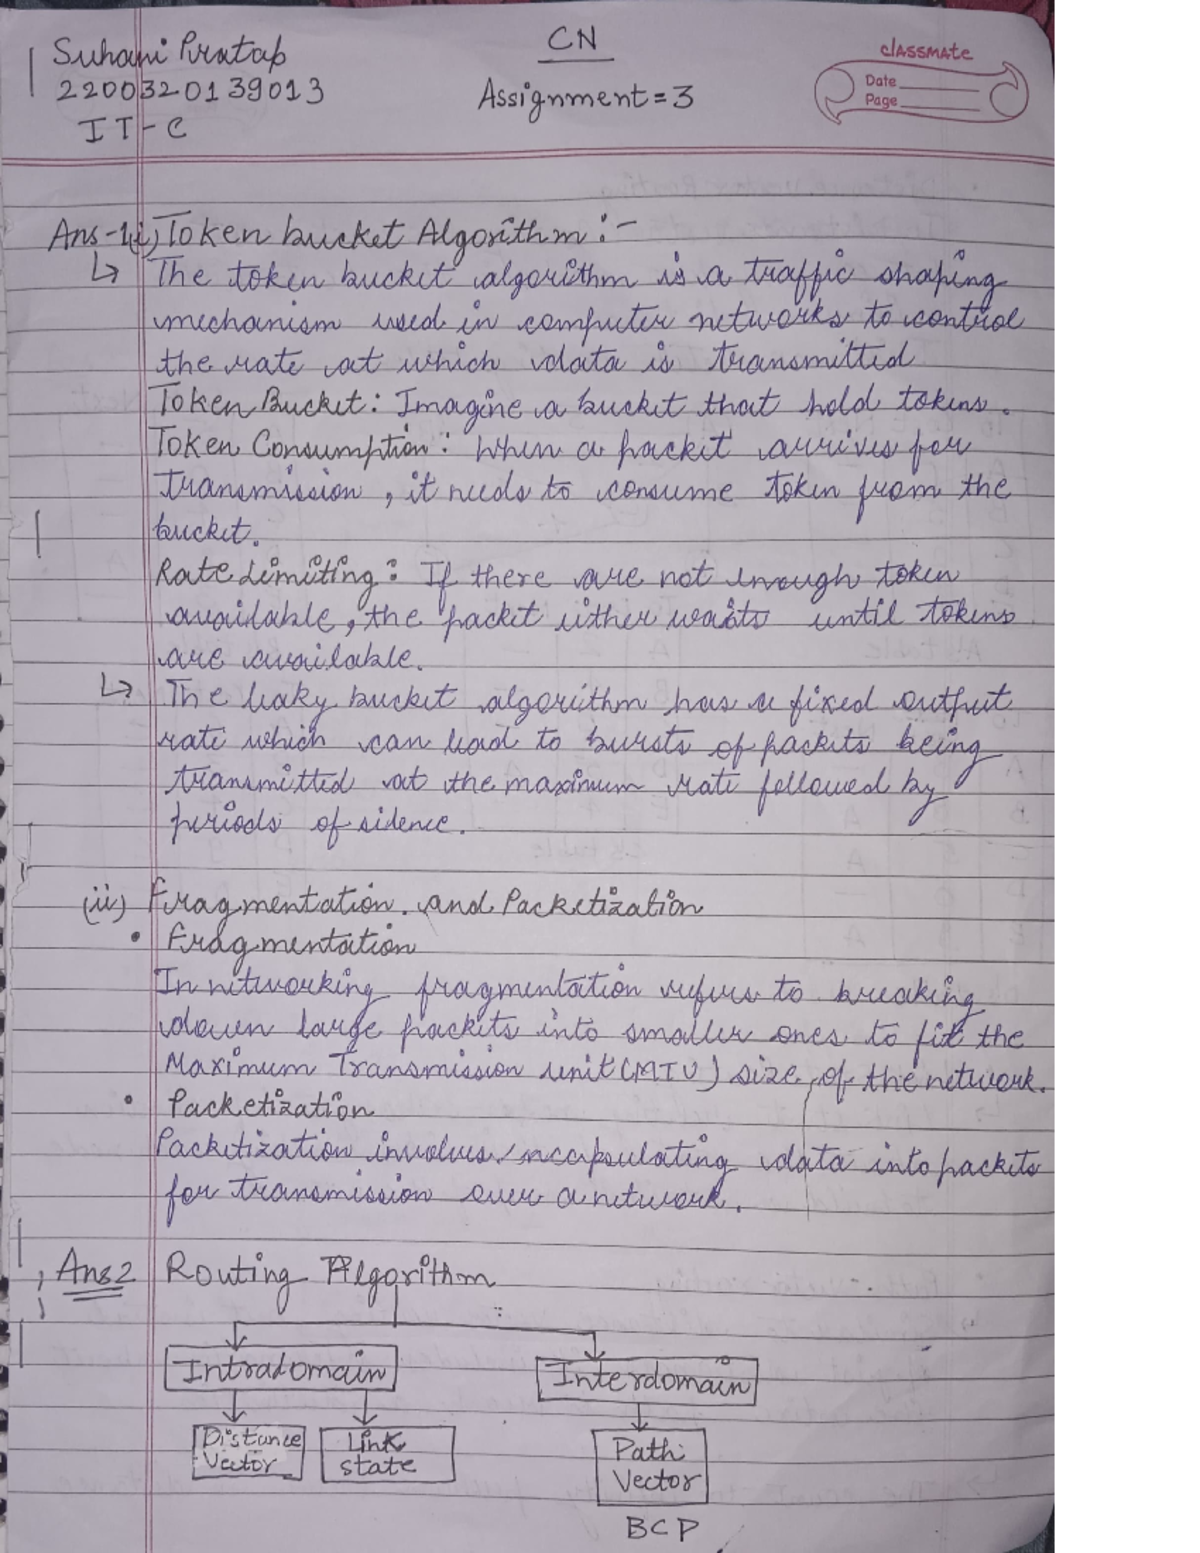 Suhani Pratap
2200320139013
IT-C
CN
Assignment=3
classmate
Date
Page
Ans-1(i) Token bucket Algorithm:-
↳ The token bucket algorithm is a traffic shaping
mechanism used in computer networks to control
the rate at which data is transmitted
Token Bucket: Imagine a bucket that hold tokens.
Token Consumption: When a packet arrives for
transmission, it needs to consume token from the
bucket.
Rate Limiting: If there are not enough token
available, the packet either waits until tokens
are available.
↳ The leaky bucket algorithm has a fixed output
rate which can lead to bursts of packets being
transmitted at the maximum rate followed by
periods of sidence.
(ii) Fragmentation and Packetization
• Fragmentation
In networking fragmentation refers to breaking
down large packets into smaller ones to fit the
Maximum Transmission unit (MTU) size, of the network.
• Packetization
Packetization involves encapsulating data into packets
for transmission over a network.
Ans 2 Routing Algorithm
Intradomain Interdomain
Distance Vector
Link state
Path Vector
BCP